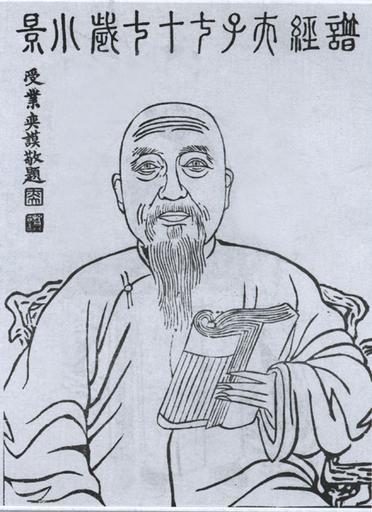 譜經夫子七十七歲小景
受業謨敬題